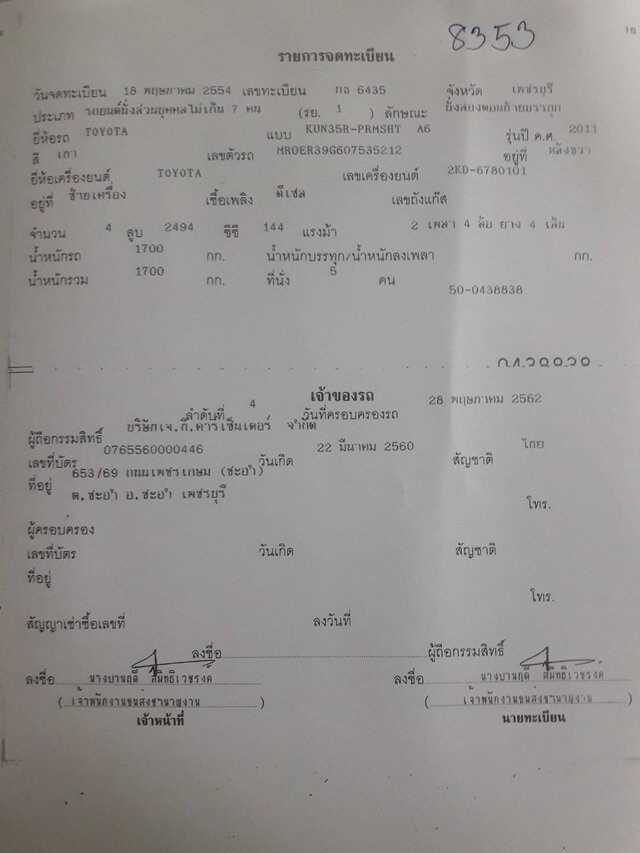 8353
รายการจดทะเบียน
วันจดทะเบียน 18 พฤษภาคม 2554 เลขทะเบียน กธ 6435 จังหวัด เพชรบุรี
ประเภท รถยนต์นั่งส่วนบุคคลไม่เกิน 7 คน (รย. 1 ) ลักษณะ นั่งสองตอนท้ายบรรทุก
ยี่ห้อรถ TOYOTA แบบ KUN35R-PRMSHT A6 รุ่นปี ค.ศ. 2011
สี เทา เลขตัวรถ MROER39G607535212 อยู่ที่ หลังขวา
ยี่ห้อเครื่องยนต์ TOYOTA เลขเครื่องยนต์ 2KD-6780101
อยู่ที่ ซ้ายเครื่อง เชื้อเพลิง ดีเซล เลขถังแก๊ส
จำนวน 4 สูบ 2494 ซีซี 144 แรงม้า 2 เพลา 4 ล้อ ยาง 4 เส้น
น้ำหนักรถ 1700 กก. น้ำหนักบรรทุก/น้ำหนักลงเพลา กก.
น้ำหนักรวม 1700 กก. ที่นั่ง 5 คน
50-0438838
เจ้าของรถ
ลำดับที่ 4 วันที่ครอบครองรถ 28 พฤษภาคม 2562
ผู้ถือกรรมสิทธิ์ บริษัทเจ.ที.คาร์เซ็นเตอร์ จำกัด
เลขที่บัตร 0765560000446 วันเกิด 22 มีนาคม 2560 สัญชาติ ไทย
ที่อยู่ 653/69 ถนนเพชรเกษม (ชะอำ)
ต.ชะอำ อ.ชะอำ เพชรบุรี
โทร.
ผู้ครอบครอง
เลขที่บัตร วันเกิด สัญชาติ
ที่อยู่
โทร.
สัญญาเช่าซื้อเลขที่ ลงวันที่
ลงชื่อ ผู้ถือกรรมสิทธิ์
ลงชื่อ ลงชื่อ
(เจ้าพนักงานขนส่งชำนาญงาน) (เจ้าพนักงานขนส่งชำนาญงาน)
เจ้าหน้าที่ นายทะเบียน